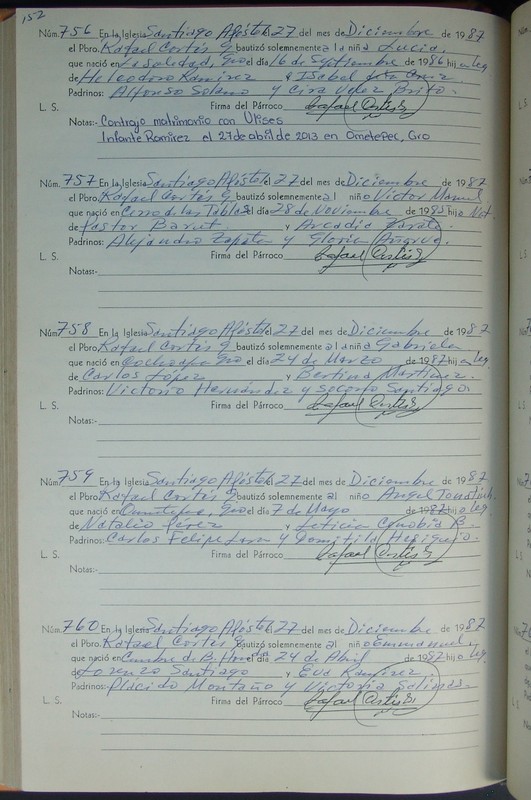 152
Núm. 756 En la Iglesia Santiago Apóstol el 27 del mes de Diciembre de 1987
el Pbro. Rafael Cortés G. bautizó solemnemente a la niña Lucia.
que nació en La Soledad, Gro el día 16 de Septiembre de 1986 hija Leg.
de Heleodoro Ramirez e Isabel de la Cruz.
Padrinos: Alfonso Solano y Cira Velez Brito.
L. S. Firma del Párroco Rafael Cortés G
Notas:- Contrajo matrimonio con Ulises
Infante Ramírez el 27 de abril de 2013 en Ometepec, Gro
Núm. 757 En la Iglesia Santiago Apóstol el 27 del mes de Diciembre de 1987
el Pbro. Rafael Cortés G. bautizó solemnemente al niño Victor Manuel
que nació en Cerro de las Tablas el día 28 de Noviembre de 1985 hijo Nat.
de Pastor y Arcadia Zarate.
Padrinos: Alejandro Zapata y Gloria
L. S. Firma del Párroco Rafael Cortés G
Notas:-
Núm. 758 En la Iglesia Santiago Apóstol el 27 del mes de Diciembre de 1987
el Pbro. Rafael Cortés G. bautizó solemnemente a la niña Gabriela
que nació en Cochoapa Gro el día 24 de Marzo de 1987 hija Leg.
de Carlos López y Bertina Martínez.
Padrinos: Victorio Hernández y Socorro Santiago.
L. S. Firma del Párroco Rafael Cortés G
Notas:-
Núm. 759 En la Iglesia Santiago Apóstol el 27 del mes de Diciembre de 1987
el Pbro. Rafael Cortés G. bautizó solemnemente al niño Angel
que nació en Ometepec, Gro el día 7 de Mayo de 1987 hijo Leg.
de Natalio Pérez y Leticia B.
Padrinos: Carlos Felipe y Domitila
L. S. Firma del Párroco Rafael Cortés G
Notas:-
Núm. 760 En la Iglesia Santiago Apóstol el 27 del mes de Diciembre de 1987
el Pbro. Rafael Cortés G. bautizó solemnemente al niño Emmanuel
que nació en Cumbre de B. Florida el día 24 de Abril de 1987 hijo Leg.
de Lorenzo Santiago y Eva Ramirez
Padrinos: Plácido Montaño y Victoria Salinas.
L. S. Firma del Párroco Rafael Cortés G
Notas:-